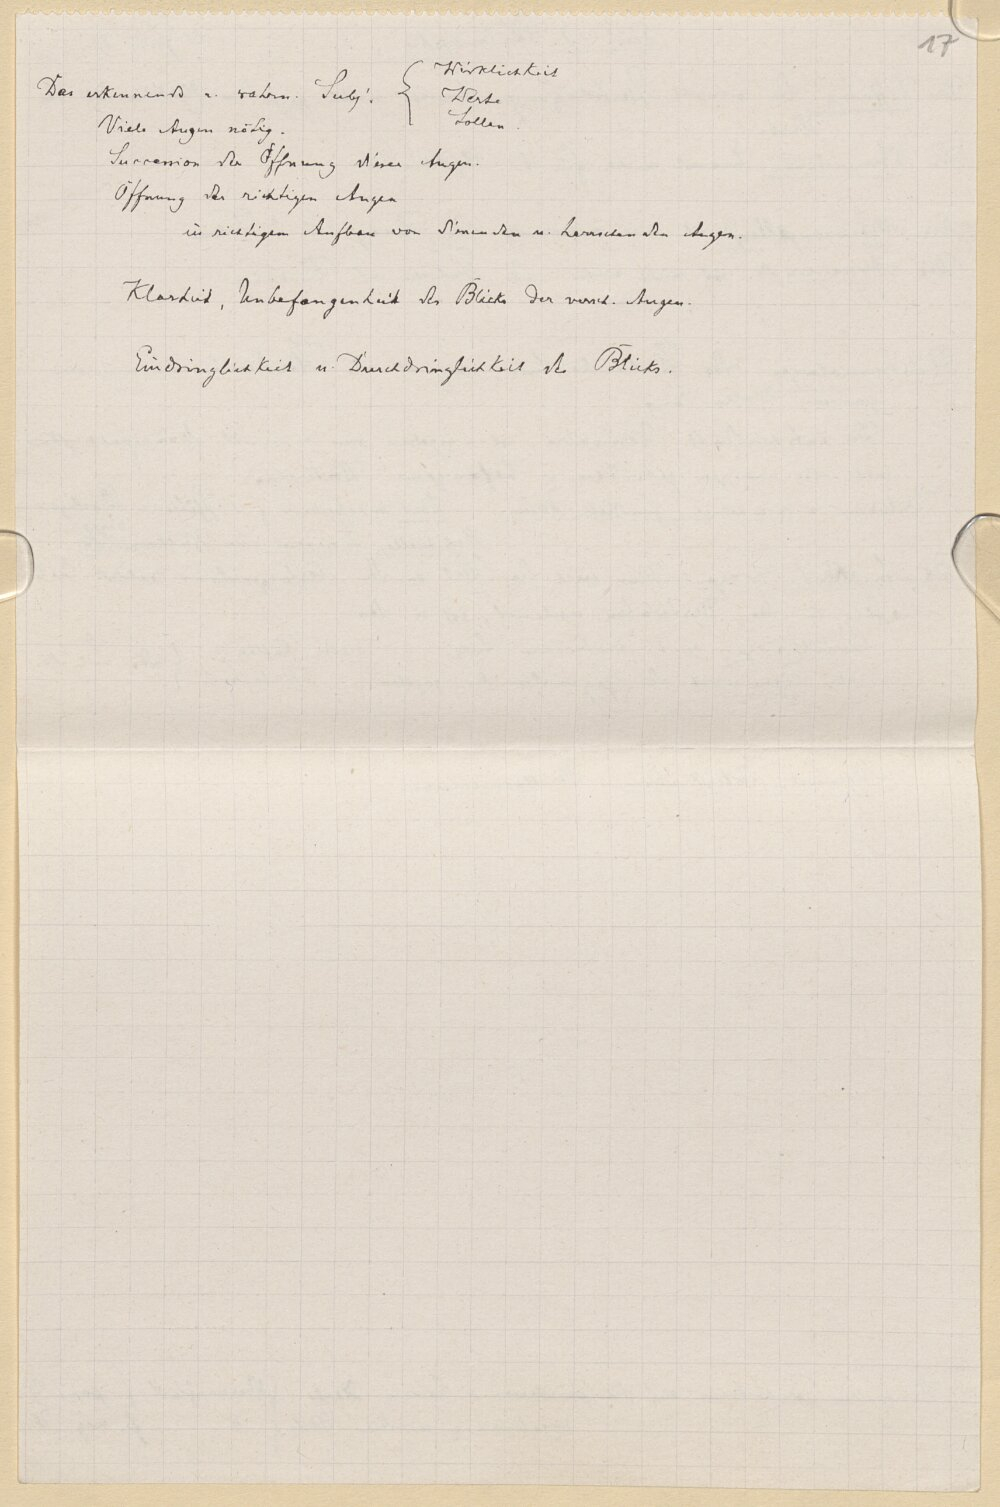 17
Das erkennende u. wahrn. Subj. { Wirklichkeit
Werte
Sollen.
Viele Augen nötig.
Succession der Öffnung dieser Augen.
Öffnung der richtigen Augen
in richtigem Aufbau von dienenden u. herrschenden Augen.
Klarheit, Unbefangenheit des Blicks der versch. Augen.
Eindringlichkeit u. Durchdringlichkeit des Blicks.